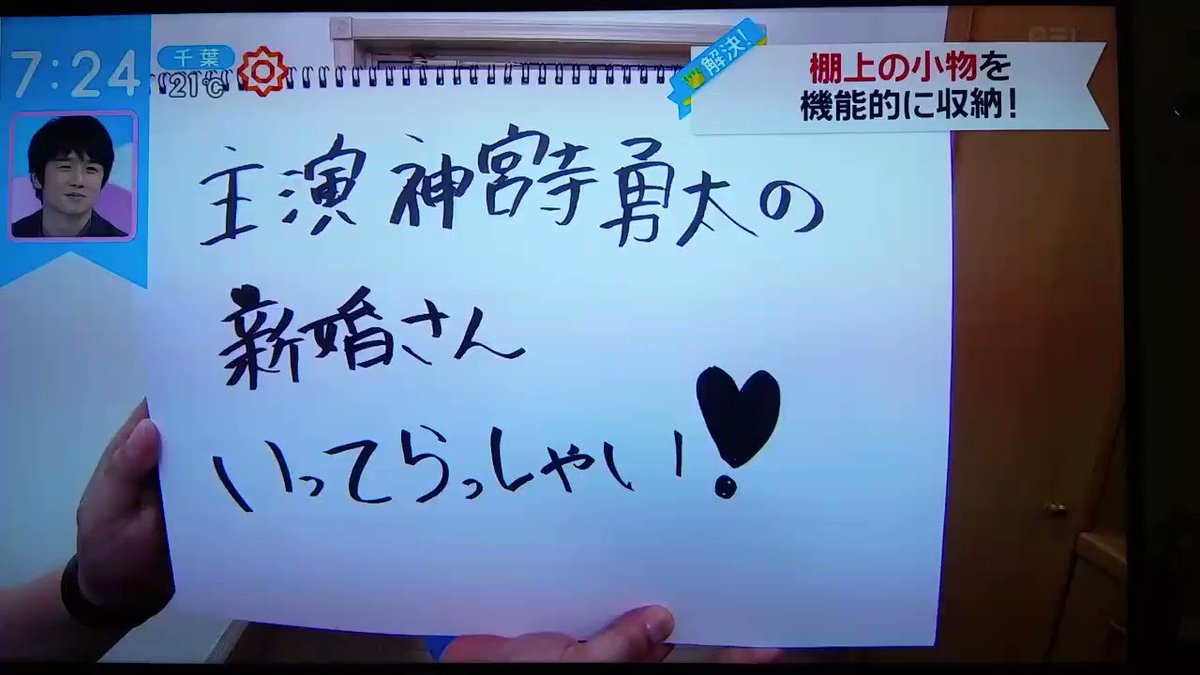 7:24
千葉
21℃
解決!
棚上の小物を
機能的に収納!
主演 神宮寺勇太の
新婚さん
いってらっしゃい!